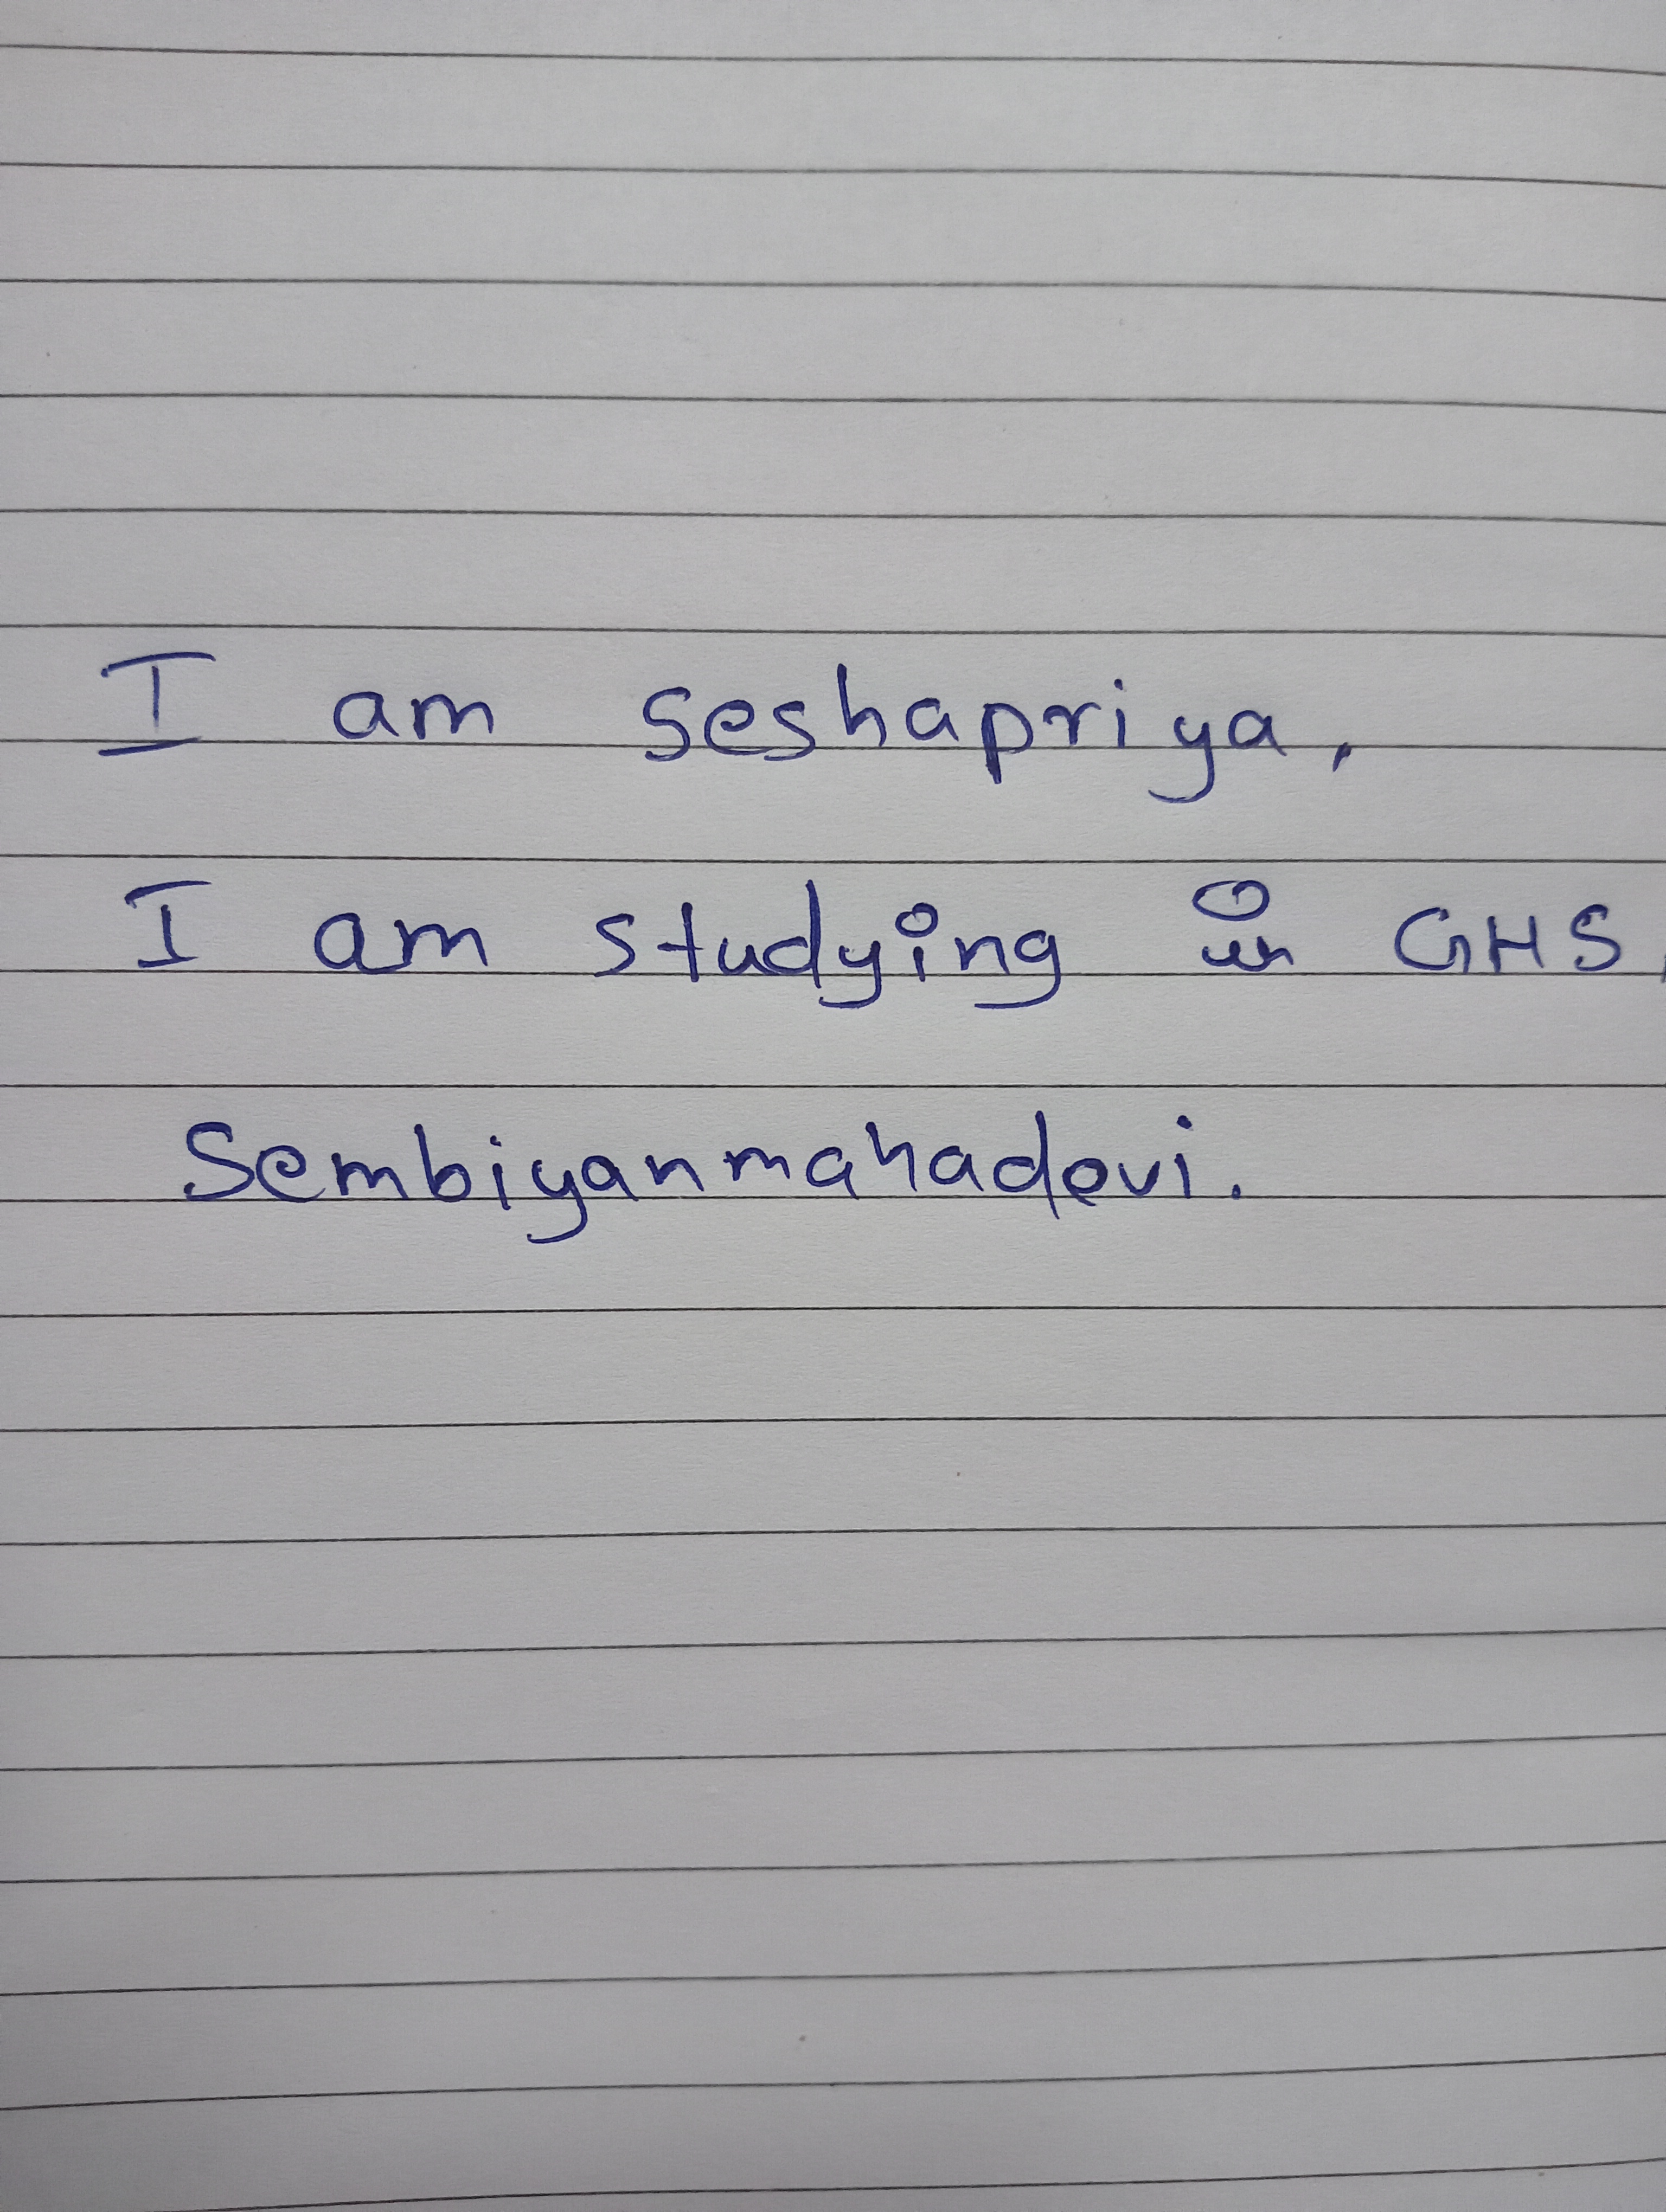 I am seshapriya,
I am studying in GHS,
Sembiyanmahadevi.